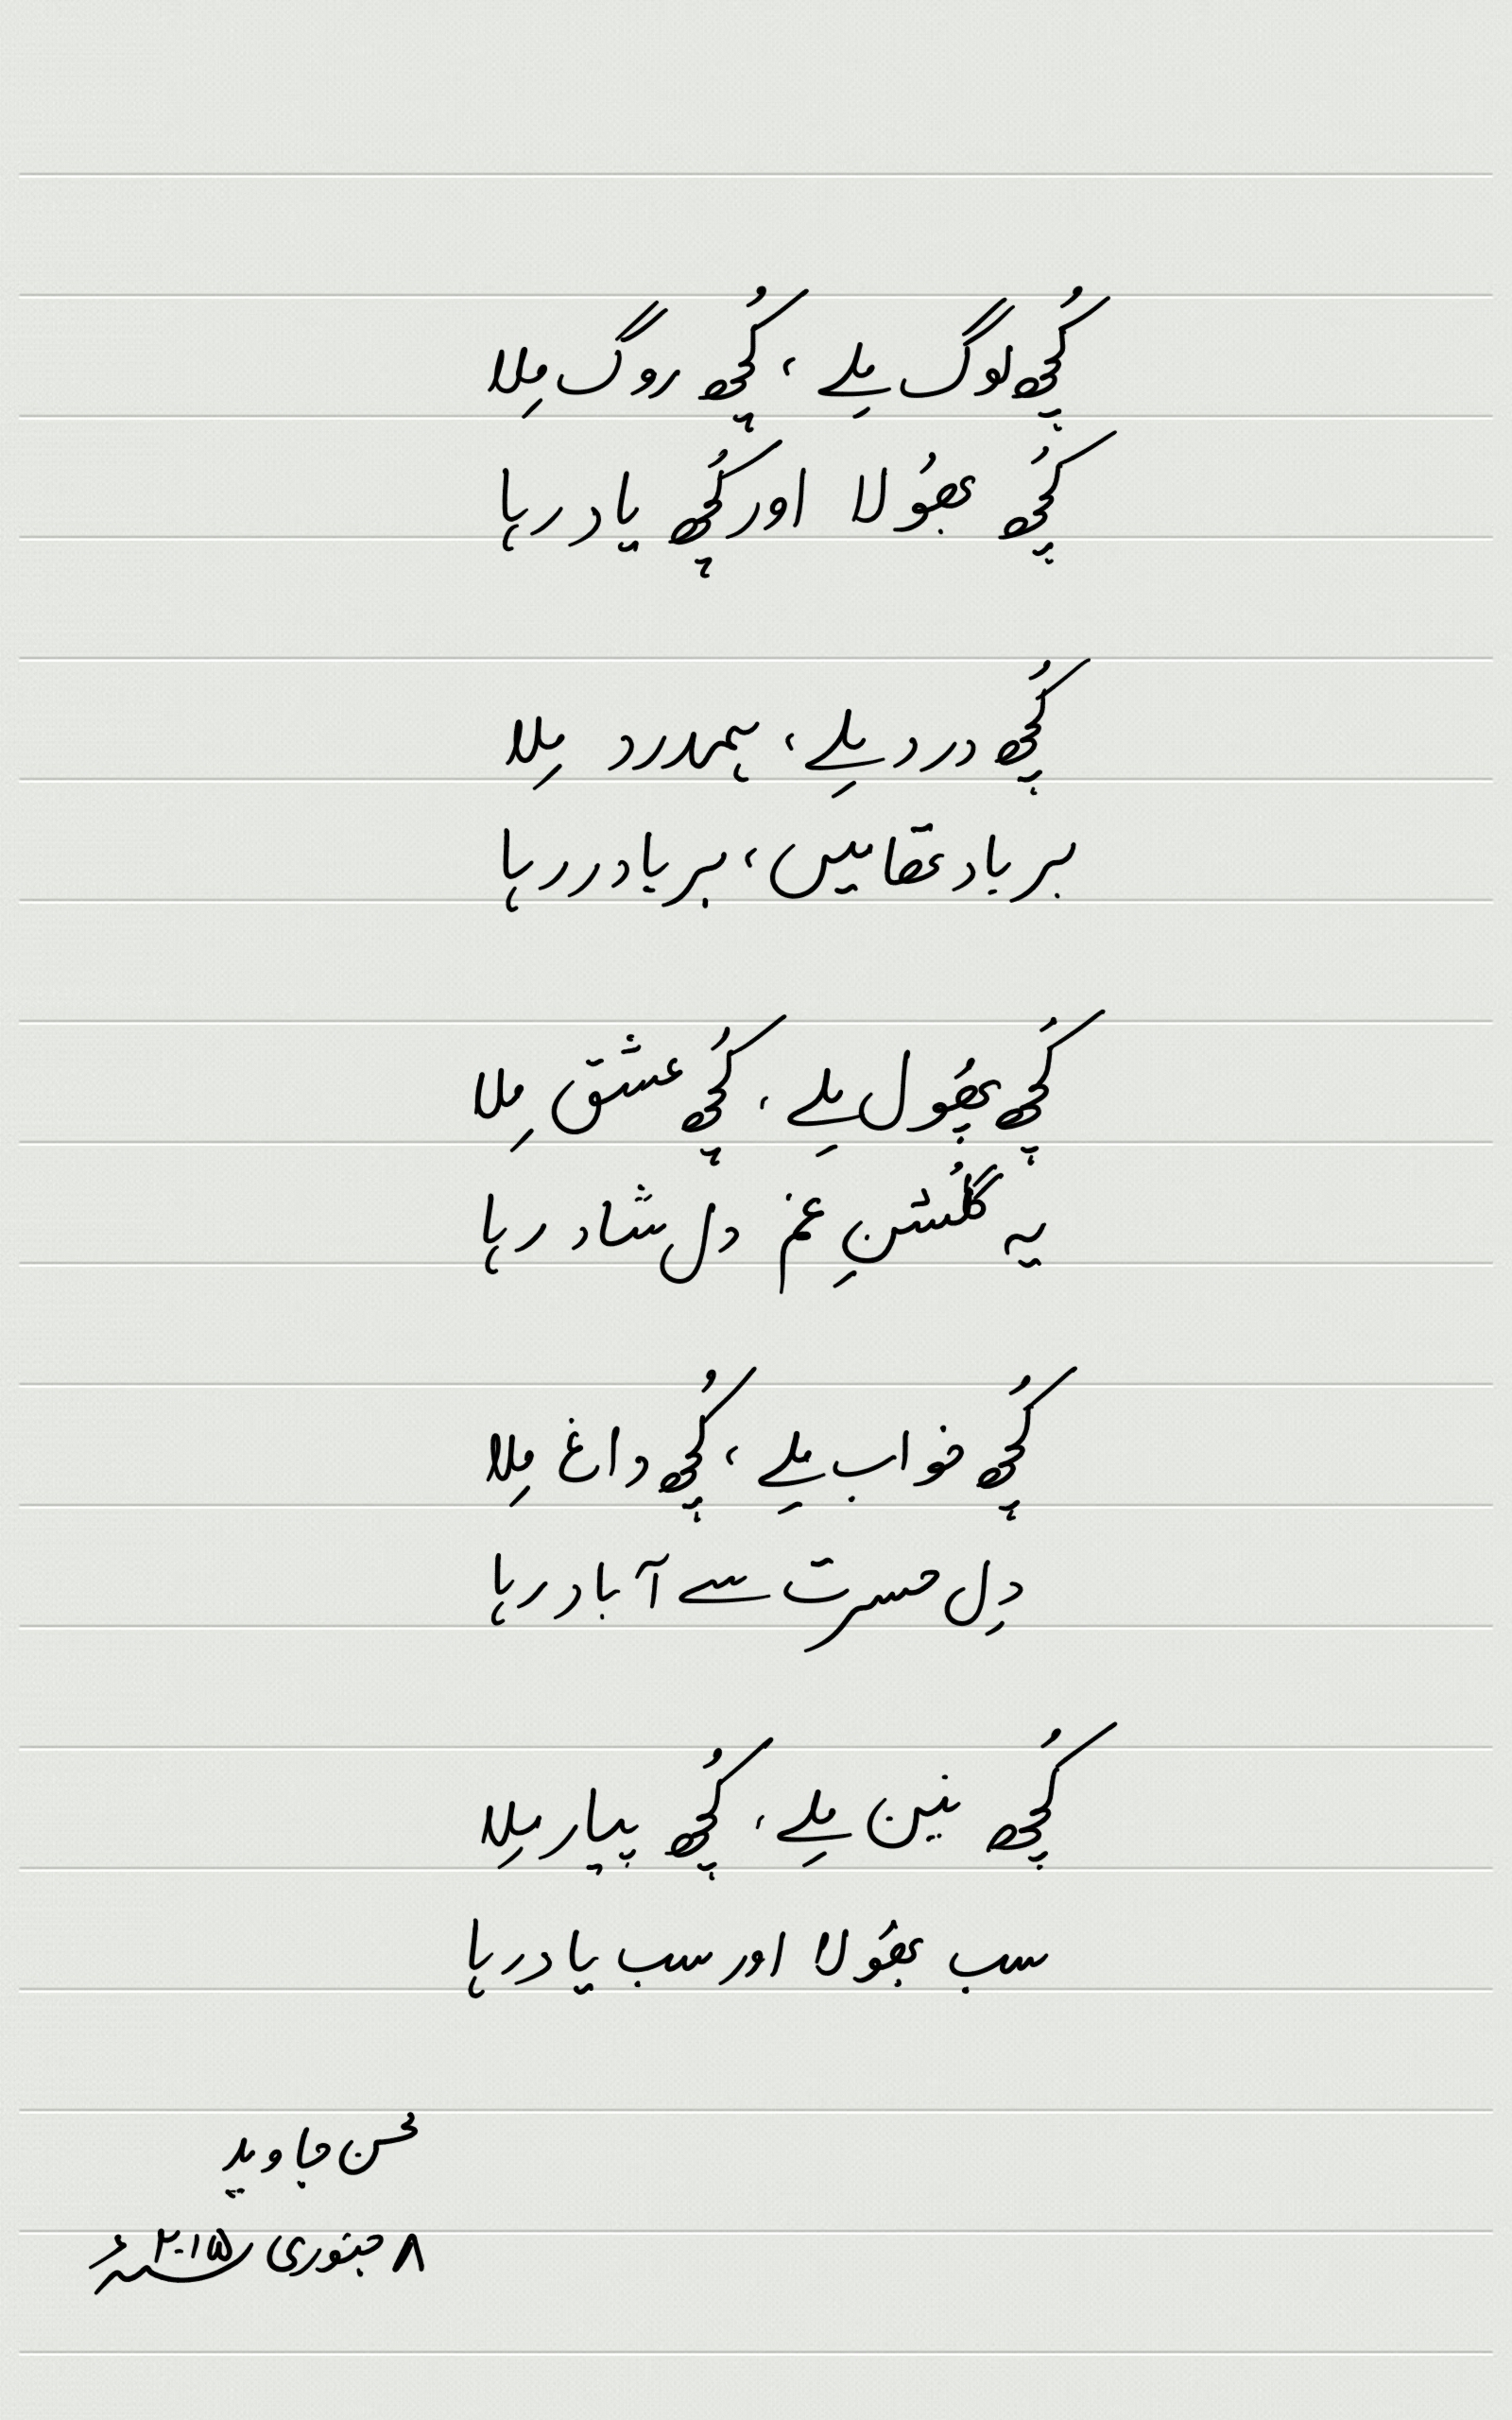 کُچھ لوگ مِلے ، کُچھ روگ مِلا
کُچھ بھُولا اور کُچھ یاد رہا
کُچھ درد مِلے ، ہمدرد مِلا
برباد تھا میں ، برباد رہا
کُچھ پھُول مِلے ، کُچھ عشق مِلا
یہ گلُشنِ غم دل شاد رہا
کُچھ خواب مِلے ، کُچھ داغ مِلا
دِل حسرت سے آباد رہا
کُچھ نین مِلے ، کُچھ پیار مِلا
سب بھُولا اور سب یاد رہا
محسن جاوید
۸ جنوری ۲۰۱۵ء